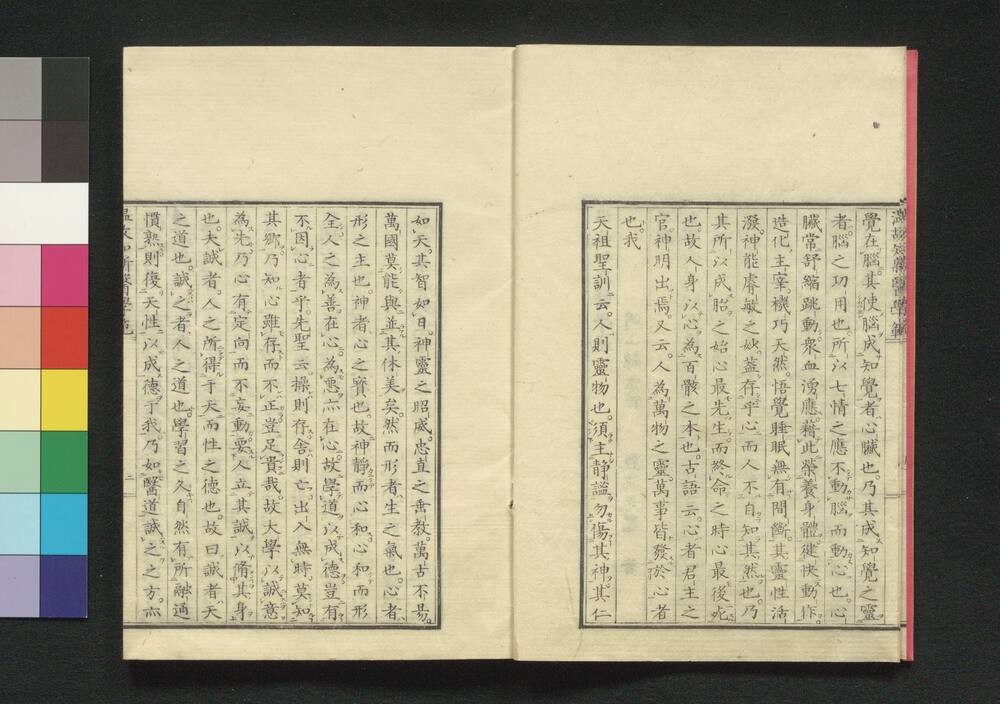 覺在腦。其使腦成知覺者。心臟也。乃其成知覺之靈
者。腦之功用也。所以七情之應。不動腦而動心也。心
臟常舒縮跳動。衆血湧應。藉此榮養身體。健快動作。
造化主宰。機巧天然。悟覺睡眠。無有間斷。其靈性活
潑。神能睿敏之妙。蓋存乎心。而人不自知其然也。乃
其所以成胎之始。心最先生。而終命之時。心最後死
也。故人身以心為百骸之本也。古語云。心者君主之
官。神明出焉。又云。人為萬物之靈。萬事皆發於心者
也。我
天祖聖訓云。人則靈物也。須主靜謐勿傷其神。其仁
如天。其智如日。神靈之昭威。忠直之垂教。萬古不易。
萬國莫能與並其休美矣。然而形者。生之氣也。心者。
形之主也。神者心之寶也。故神靜而心和。心和而形
全。人之為善在心。為惡亦在心。故學道以成德。豈有
不因心者乎。先聖云。操則存。舍則亡。出入無時。莫知
其鄉。乃知心雖存而不正。豈足貴哉。故大學以誠意
為先。乃心有定向而不妄動。要人立其誠以脩其身
也。夫誠者。人之所得于天。而性之德也。故曰。誠者。天
之道也。誠之者。人之道也。學習之久。自然有所融通
慣熟。則復天性以成德于我。乃如醫道誠之之方。亦